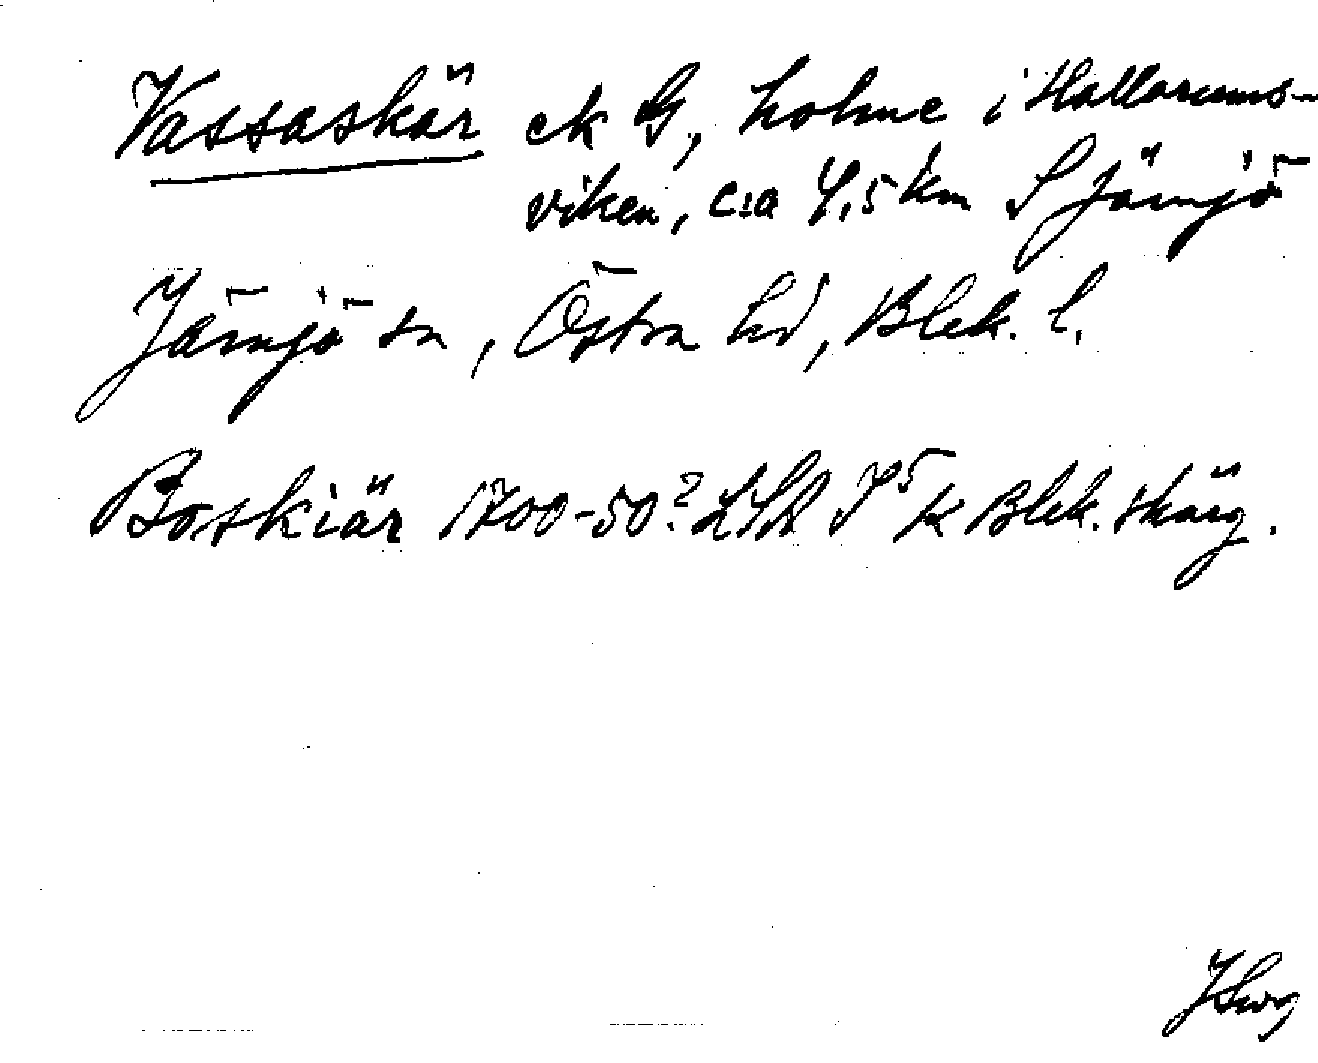 Vassaskär ek G, holme i Hallarums-
viken, c:a 4,5 km S Jämjö
Jämjö sn, Östra hd, Blek. l.
Boskiär 1700-50? LSA I5 k Blek. skärg.